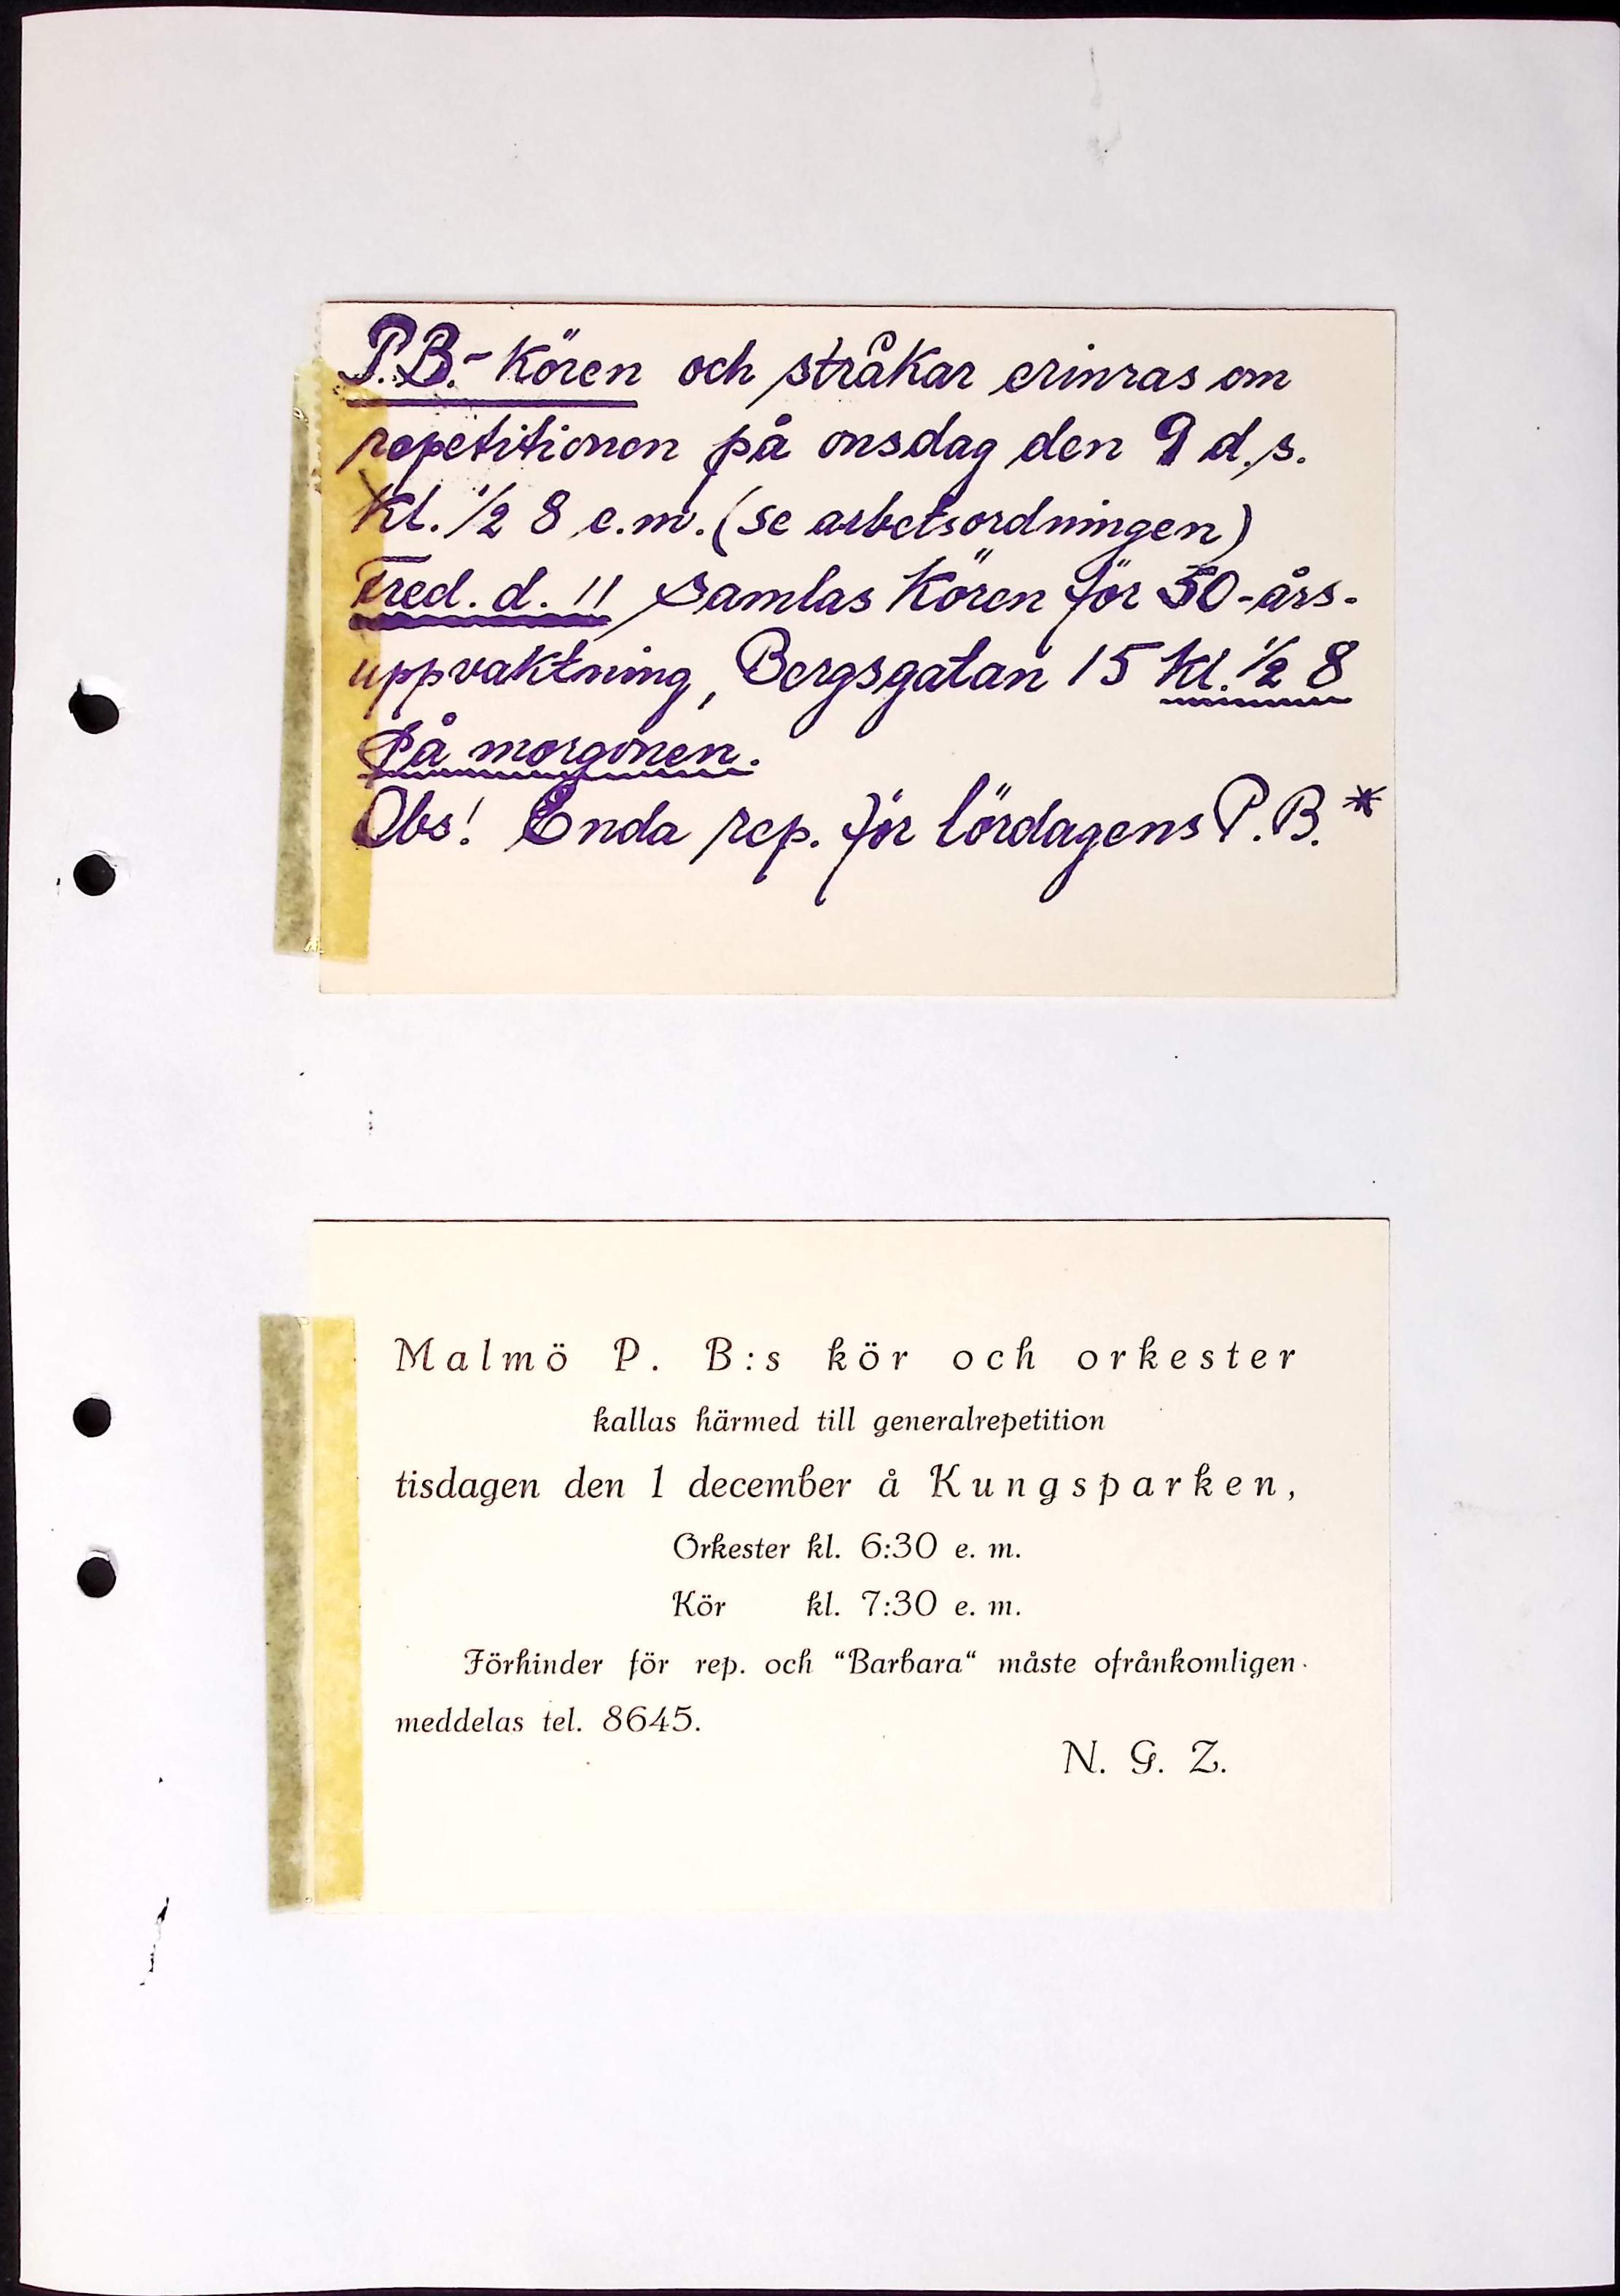 P.B.-Kören och stråkar erinras om
repetitionen på onsdag den 9 d.s.
Kl. 1/2 8 e.m. (se arbetsordningen)
Fred. d. 11 samlas Kören för 50-års-
uppvaktning, Bergsgatan 15 Kl. 1/2 8
På morgonen.
Obs! Enda rep. för lördagens P.B.*
Malmö P. B:s kör och orkester
kallas härmed till generalrepetition
tisdagen den 1 december å Kungsparken,
Orkester kl. 6:30 e. m.
Kör kl. 7:30 e. m.
Förhinder för rep. och “Barbara“ måste ofrånkomligen
meddelas tel. 8645.
N. G. Z.